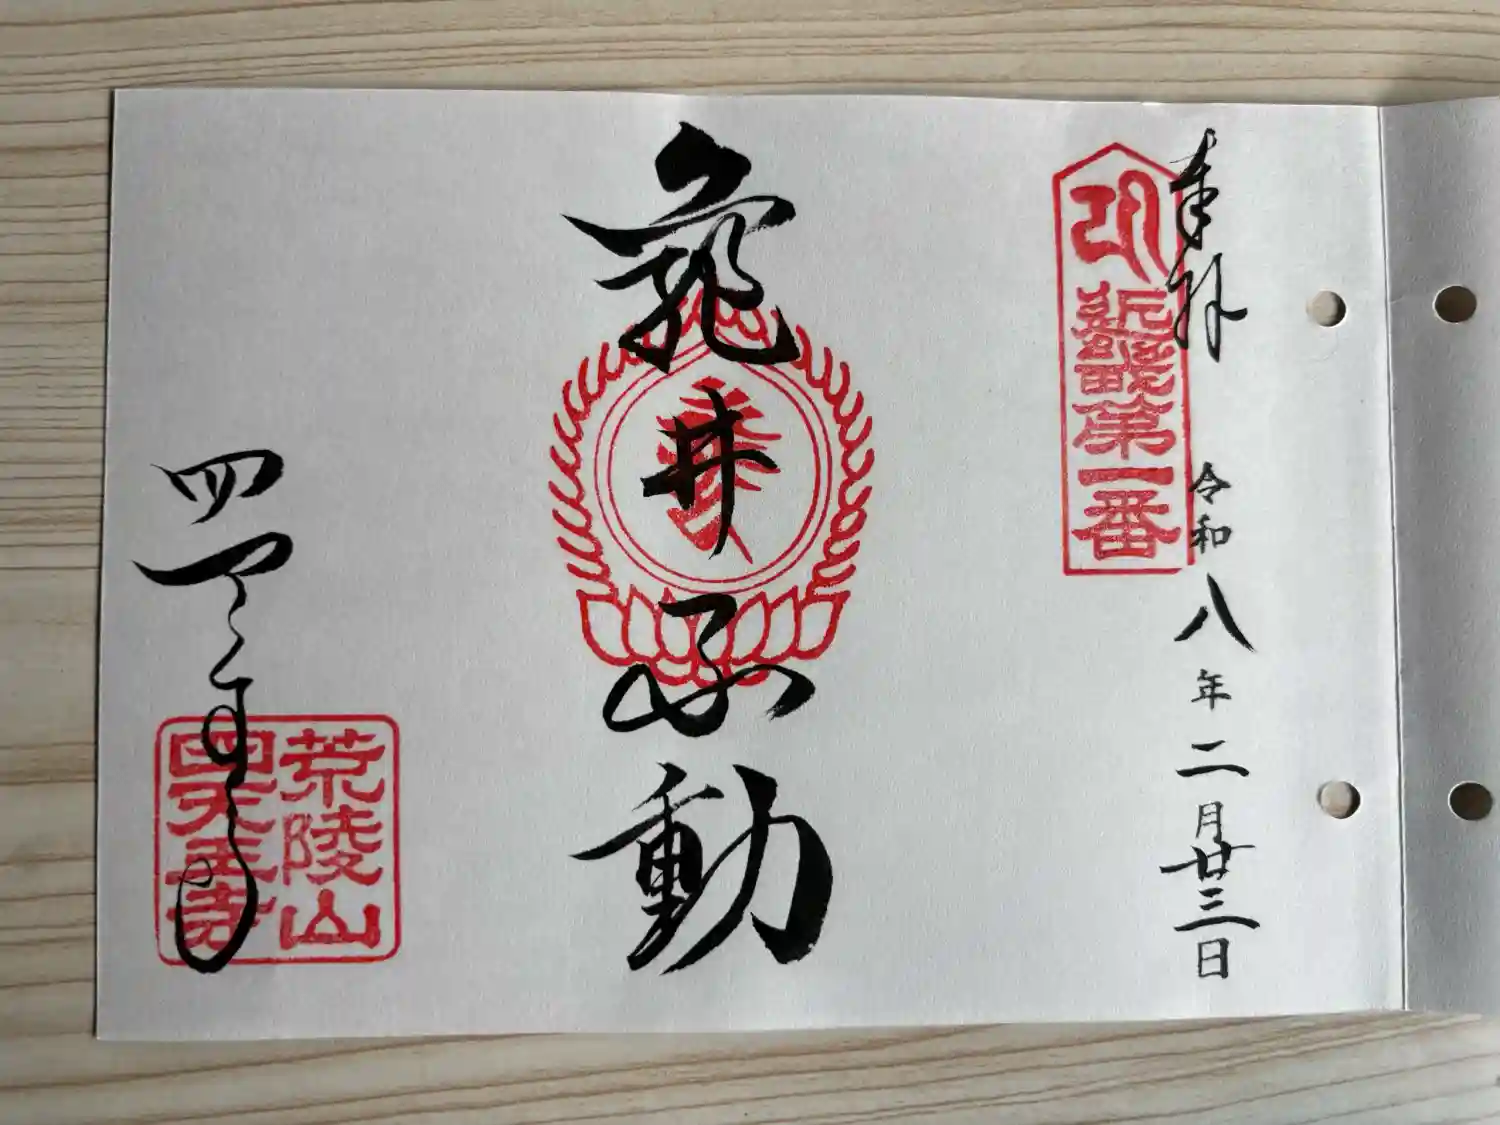 奉拝 令和八年二月廿三日
近畿第一番
亀井不動
四天王寺
荒陵山
四天王寺